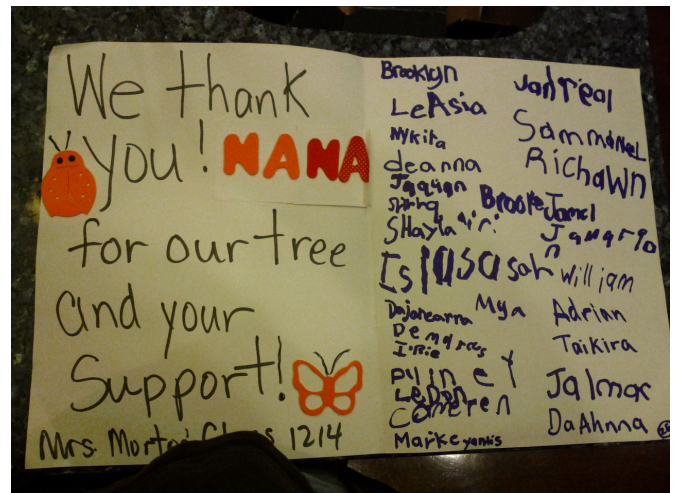 We thank
you! NANA
for our tree
and your
Support!
Mrs. 1214
Brooklyn
LeAsia
Nykita
deanna
Jaquan
Shayla
Brooke
Dajanearra
Mya
Demarcus
I'Rie
LeDon
Cameren
Markeyantis
Jontreal
Sammanuel
RichaWN
Jamel
William
Adrian
Taikira
Jalmar
DaAhnna